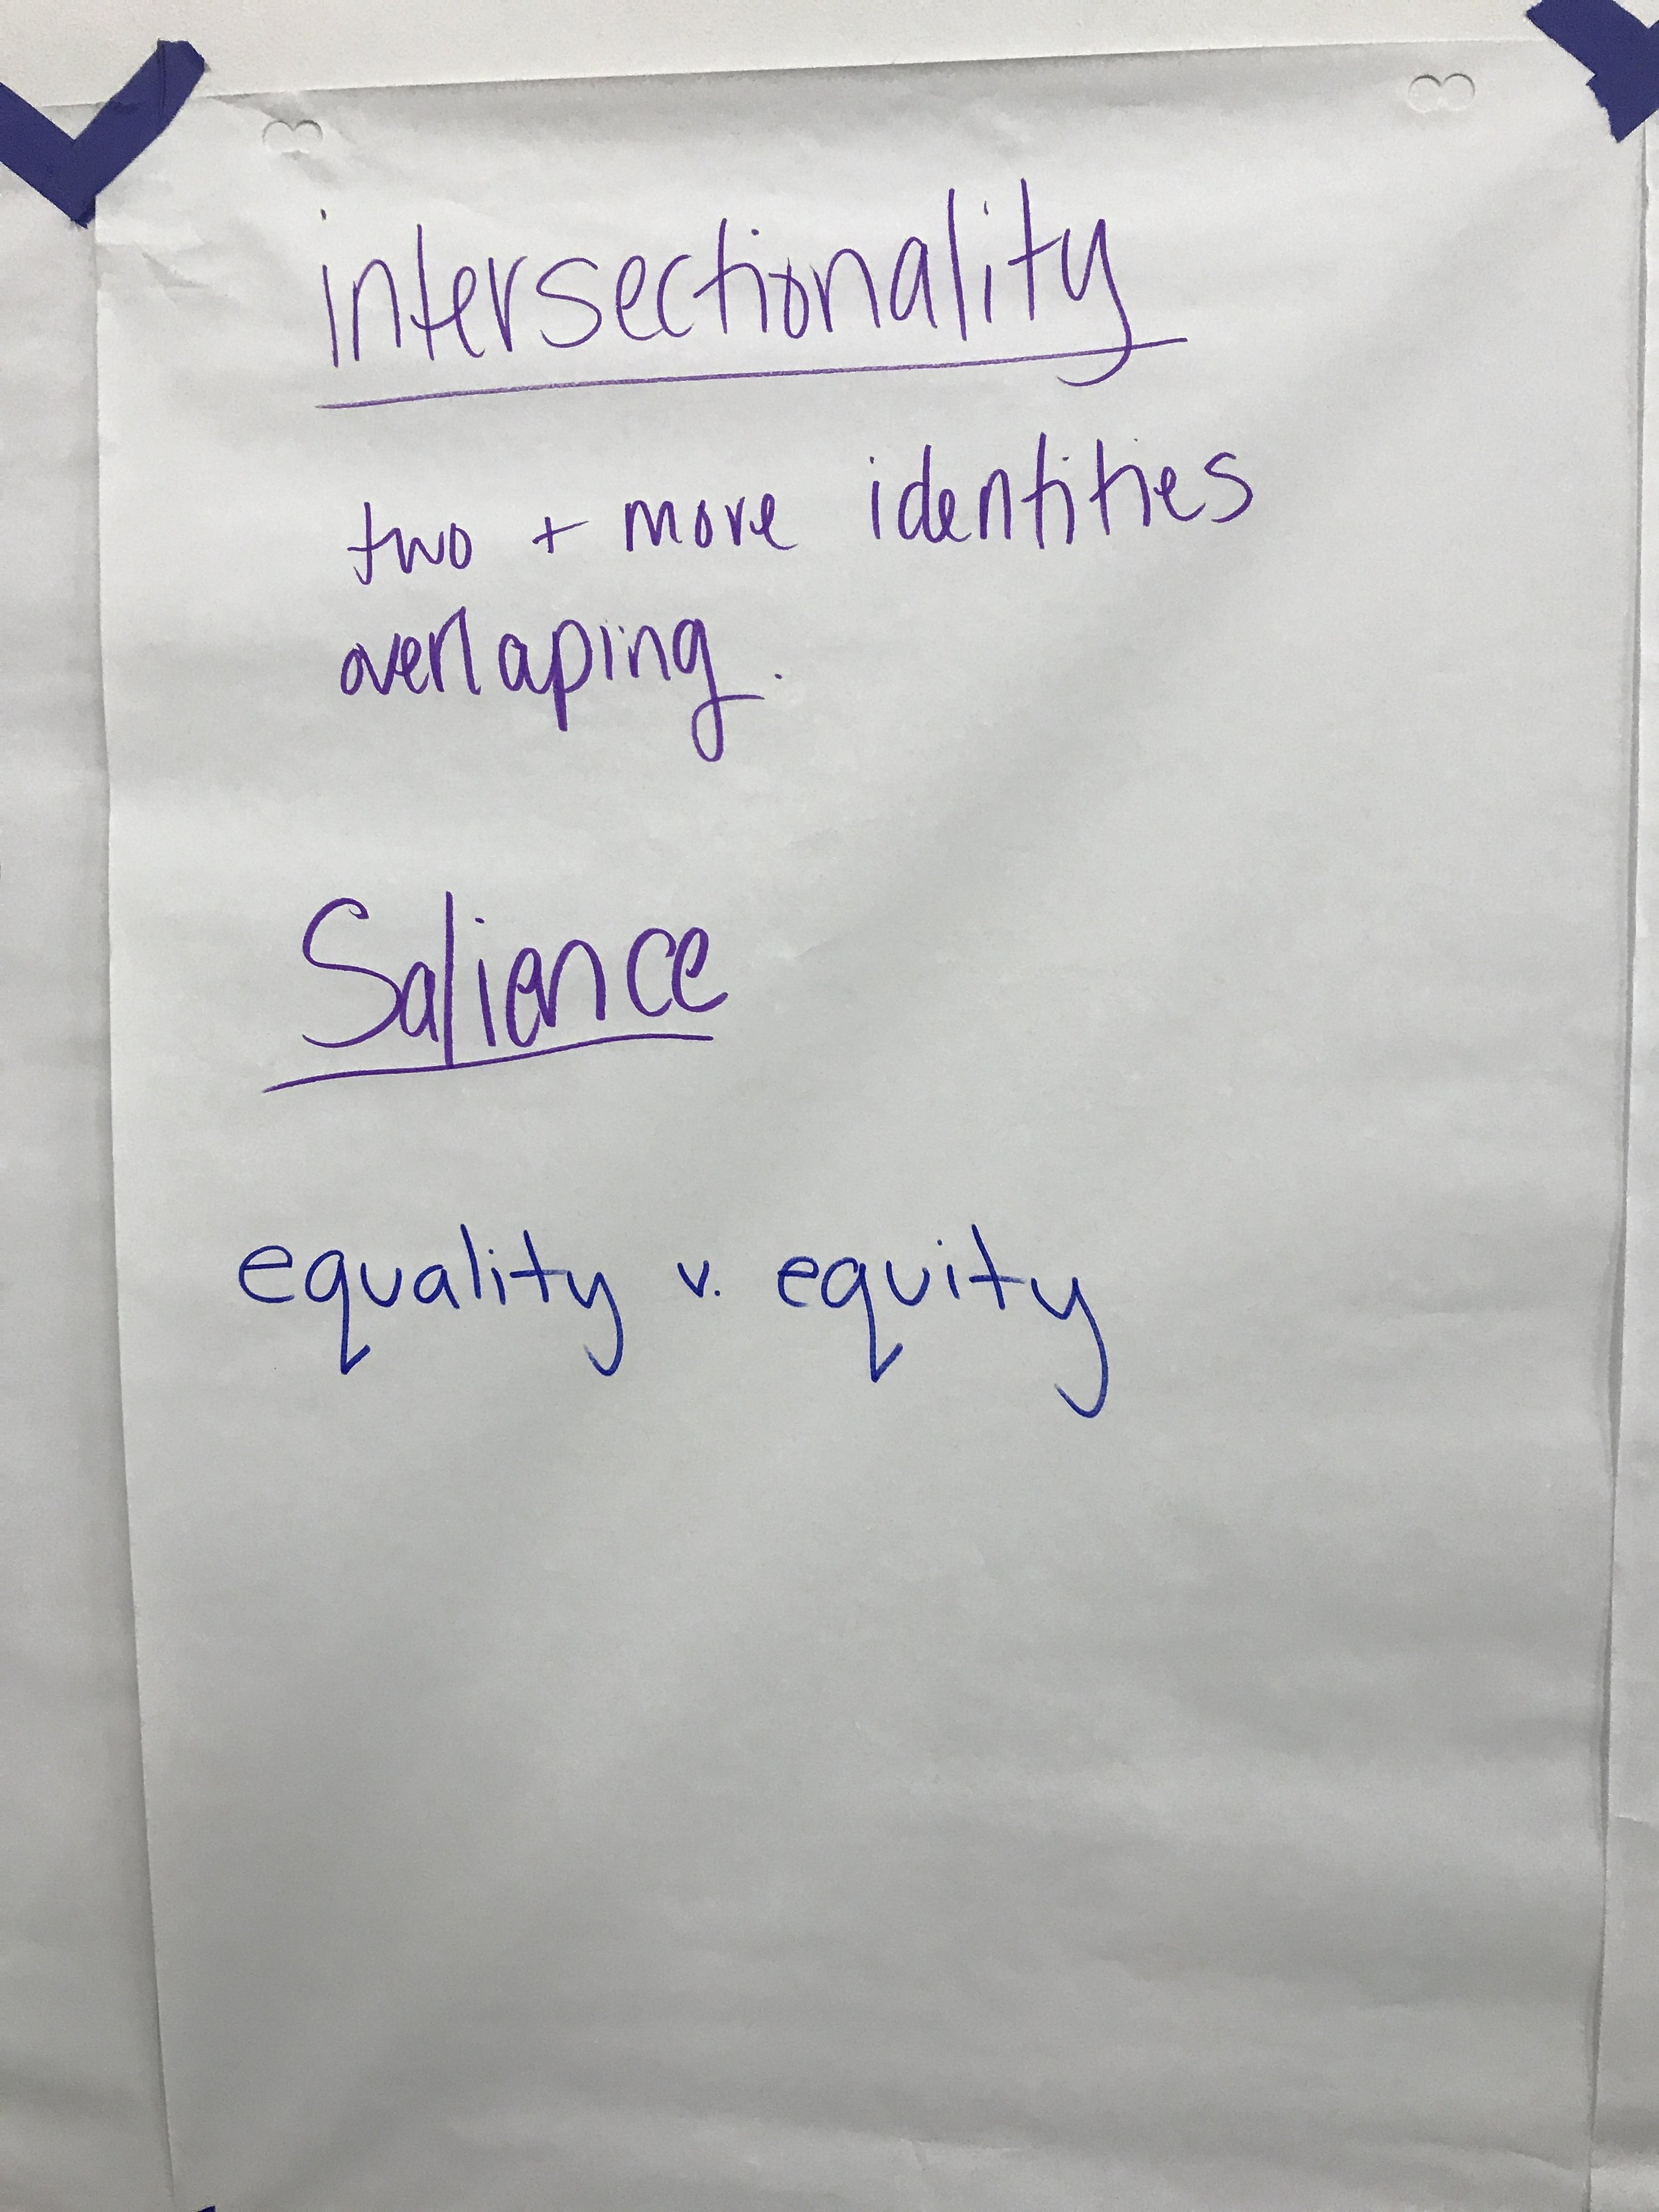 intersectionality
two + more identities
overlaping.
Salience
equality v. equity